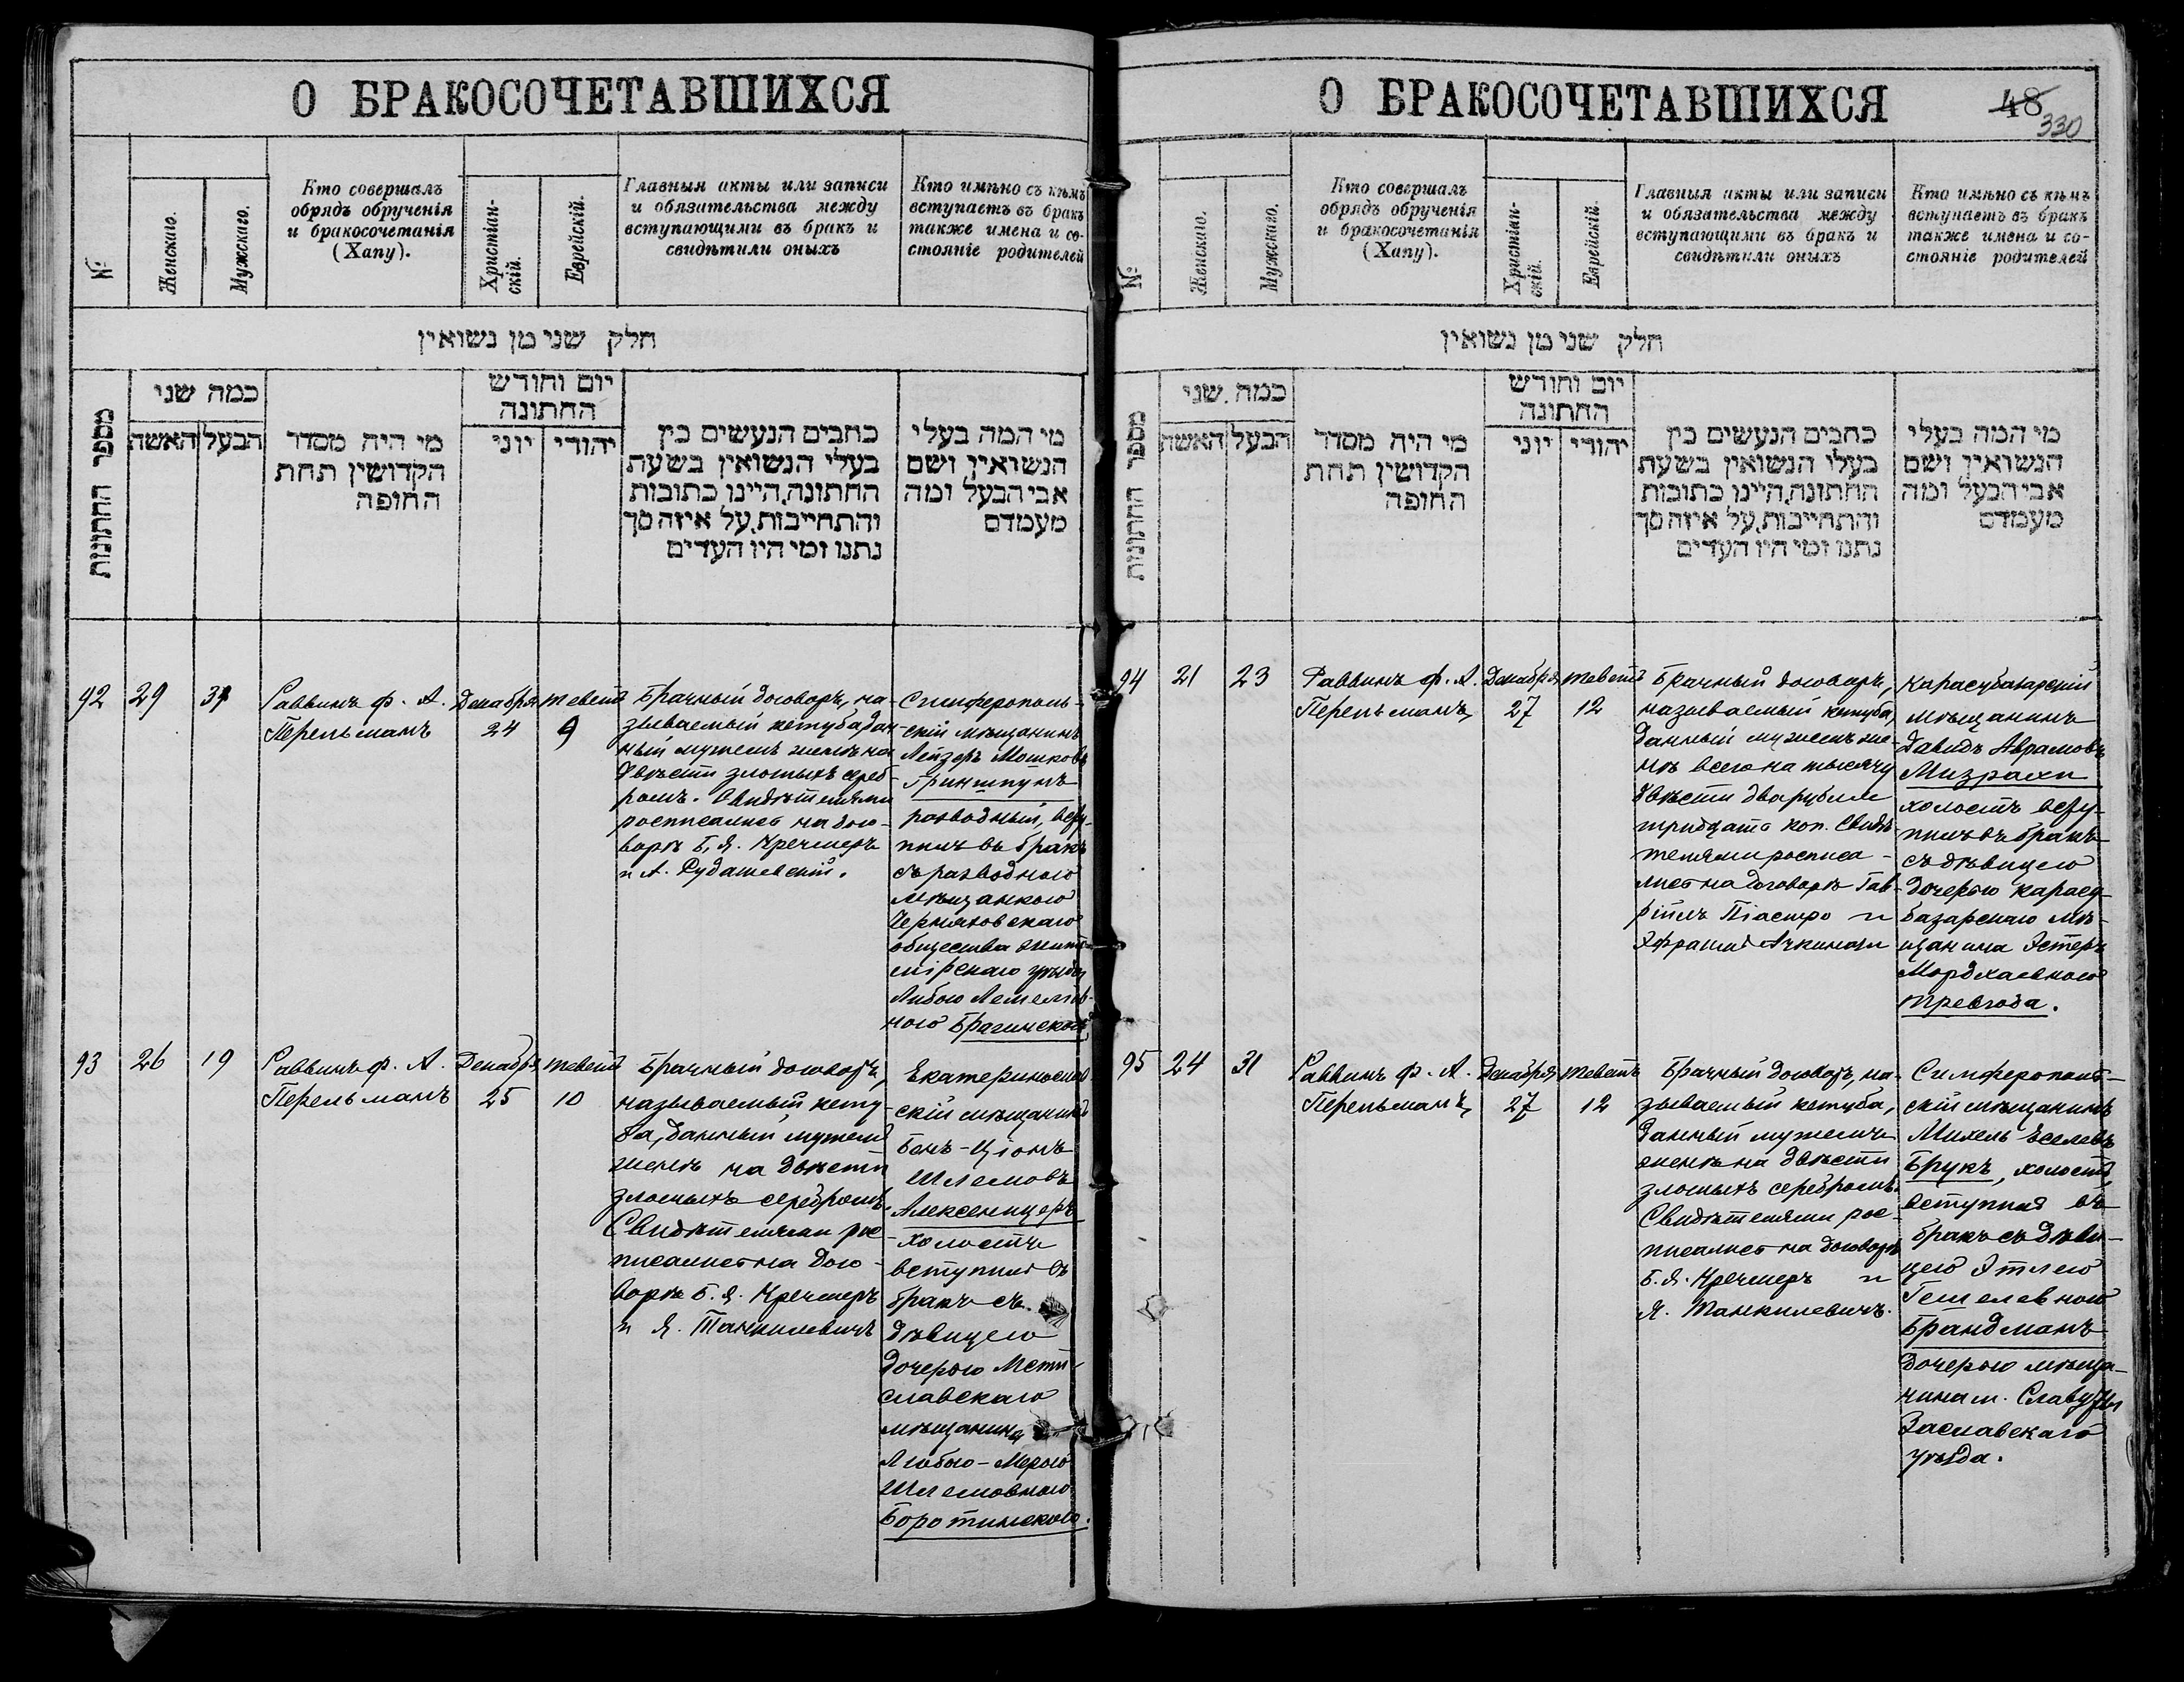 О БРАКОСОЧЕТАВШИХСЯ
№
Женскаго.
Мужскаго.
Кто совершалъ
обрядъ обрученія
и бракосочетанія
(Хапу).
Христіан-
скій.
Еврейскій.
Главныя акты или записи
и обязательства между
вступающими въ бракъ и
свидѣтили оныхъ
Кто имѣно съ кѣмъ
вступаетъ въ бракъ
также имена и со-
стояніе родителей
חלק שני מן נשואין
מספר החתונות
כמה שני
האשה
הבעל
מי היה מסדר
הקדושין תחת
החופה
יום וחודש
החתונה
יוני
יהודי
כתבים הנעשים בין
בעלי הנשואין בשעת
החתונה, היינו כתובות
והתחייבות, על איזה סך
נתנו ומי היו העדים
מי המה בעלי
הנשואין ושם
אבי הבעל ומה
מעמדם
92
29
Раввинъ Ф. А.
Перельманъ
Декабря
24
Тевета
9
Брачный договоръ, на-
зываемый кетуба, дан-
ный мужемъ женѣ на
двѣсти злотыхъ сереб-
ромъ. Свидѣтелями
росписались на дого-
ворѣ Б. Я. Кречмеръ
и А. Рудашевскій.
Симферополь-
скій мѣщанинъ
Лейзеръ Мошковъ
Гриншпунъ
разводный, всту-
пилъ въ бракъ
съ разводною
мѣщанкою
Черняховскаго
общества Жито-
мірскаго уѣзда
Либою
ною Брагинскою
93
26
19
Раввинъ Ф. А.
Перельманъ
Декабря
25
Тевета
10
Брачный договоръ,
называемый кету-
ба, данный мужемъ
женѣ на двѣсти
злотыхъ серебромъ.
Свидѣтелями рос-
писались на дого-
ворѣ Б. Я. Кречмеръ
и Я. Танкилевичъ
Екатеринослав-
скій мѣщанинъ
Бенъ-Ціонъ
Шлемовъ
Алексеницеръ
холостъ
вступилъ въ
бракъ съ
дѣвицею
дочерью Мсти-
славскаго
мѣщанина
Любою-Мерою
Шлемовною
Боротинскою.
О БРАКОСОЧЕТАВШИХСЯ
48
330
№
Женскаго.
Мужскаго.
Кто совершалъ
обрядъ обрученія
и бракосочетанія
(Хапу).
Христіан-
скій.
Еврейскій.
Главныя акты или записи
и обязательства между
вступающими въ бракъ и
свидѣтили оныхъ
Кто имѣно съ кѣмъ
вступаетъ въ бракъ
также имена и со-
стояніе родителей
חלק שני מן נשואין
מספר החתונות
כמה שני
האשה
הבעל
מי היה מסדר
הקדושין תחת
החופה
יום וחודש
החתונה
יוני
יהודי
כתבים הנעשים בין
בעלי הנשואין בשעת
החתונה, היינו כתובות
והתחייבות, על איזה סך
נתנו ומי היו העדים
מי המה בעלי
הנשואין ושם
אבי הבעל ומה
מעמדם
94
21
23
Раввинъ Ф. А.
Перельманъ
Декабря
27
Тевета
12
Брачный договоръ,
называемый кетуба,
данный мужемъ же-
нѣ всего на тысячу
двѣсти два рубля
тридцать коп. Свидѣ-
телями росписа-
лись на договорѣ Гав-
ріилъ Піастро и
Эфраимъ Ачкинази
Карасубазарскій
мѣщанинъ
Давидъ Аврамовъ
Мизрахи
холостъ всту-
пилъ въ бракъ
съ дѣвицею
дочерью Карасу-
базарскаго мѣ-
щанина Эстеръ
Мордхаевною
Тревгода.
95
24
31
Раввинъ Ф. А.
Перельманъ
Декабря
27
Тевета
12
Брачный договоръ, на-
зываемый кетуба,
данный мужемъ
женѣ на двѣсти
злотыхъ серебромъ.
Свидѣтелями рос-
писались на договорѣ
Б. Я. Кречмеръ и
Я. Танкилевичъ.
Симферополь-
скій мѣщанинъ
Михель Іоселевъ
Брукъ, холостъ,
вступилъ въ
бракъ съ дѣви-
цею Этлею
Гешелевною
Брандманъ
дочерью мѣща-
нина м. Славуты
Заславскаго
уѣзда.